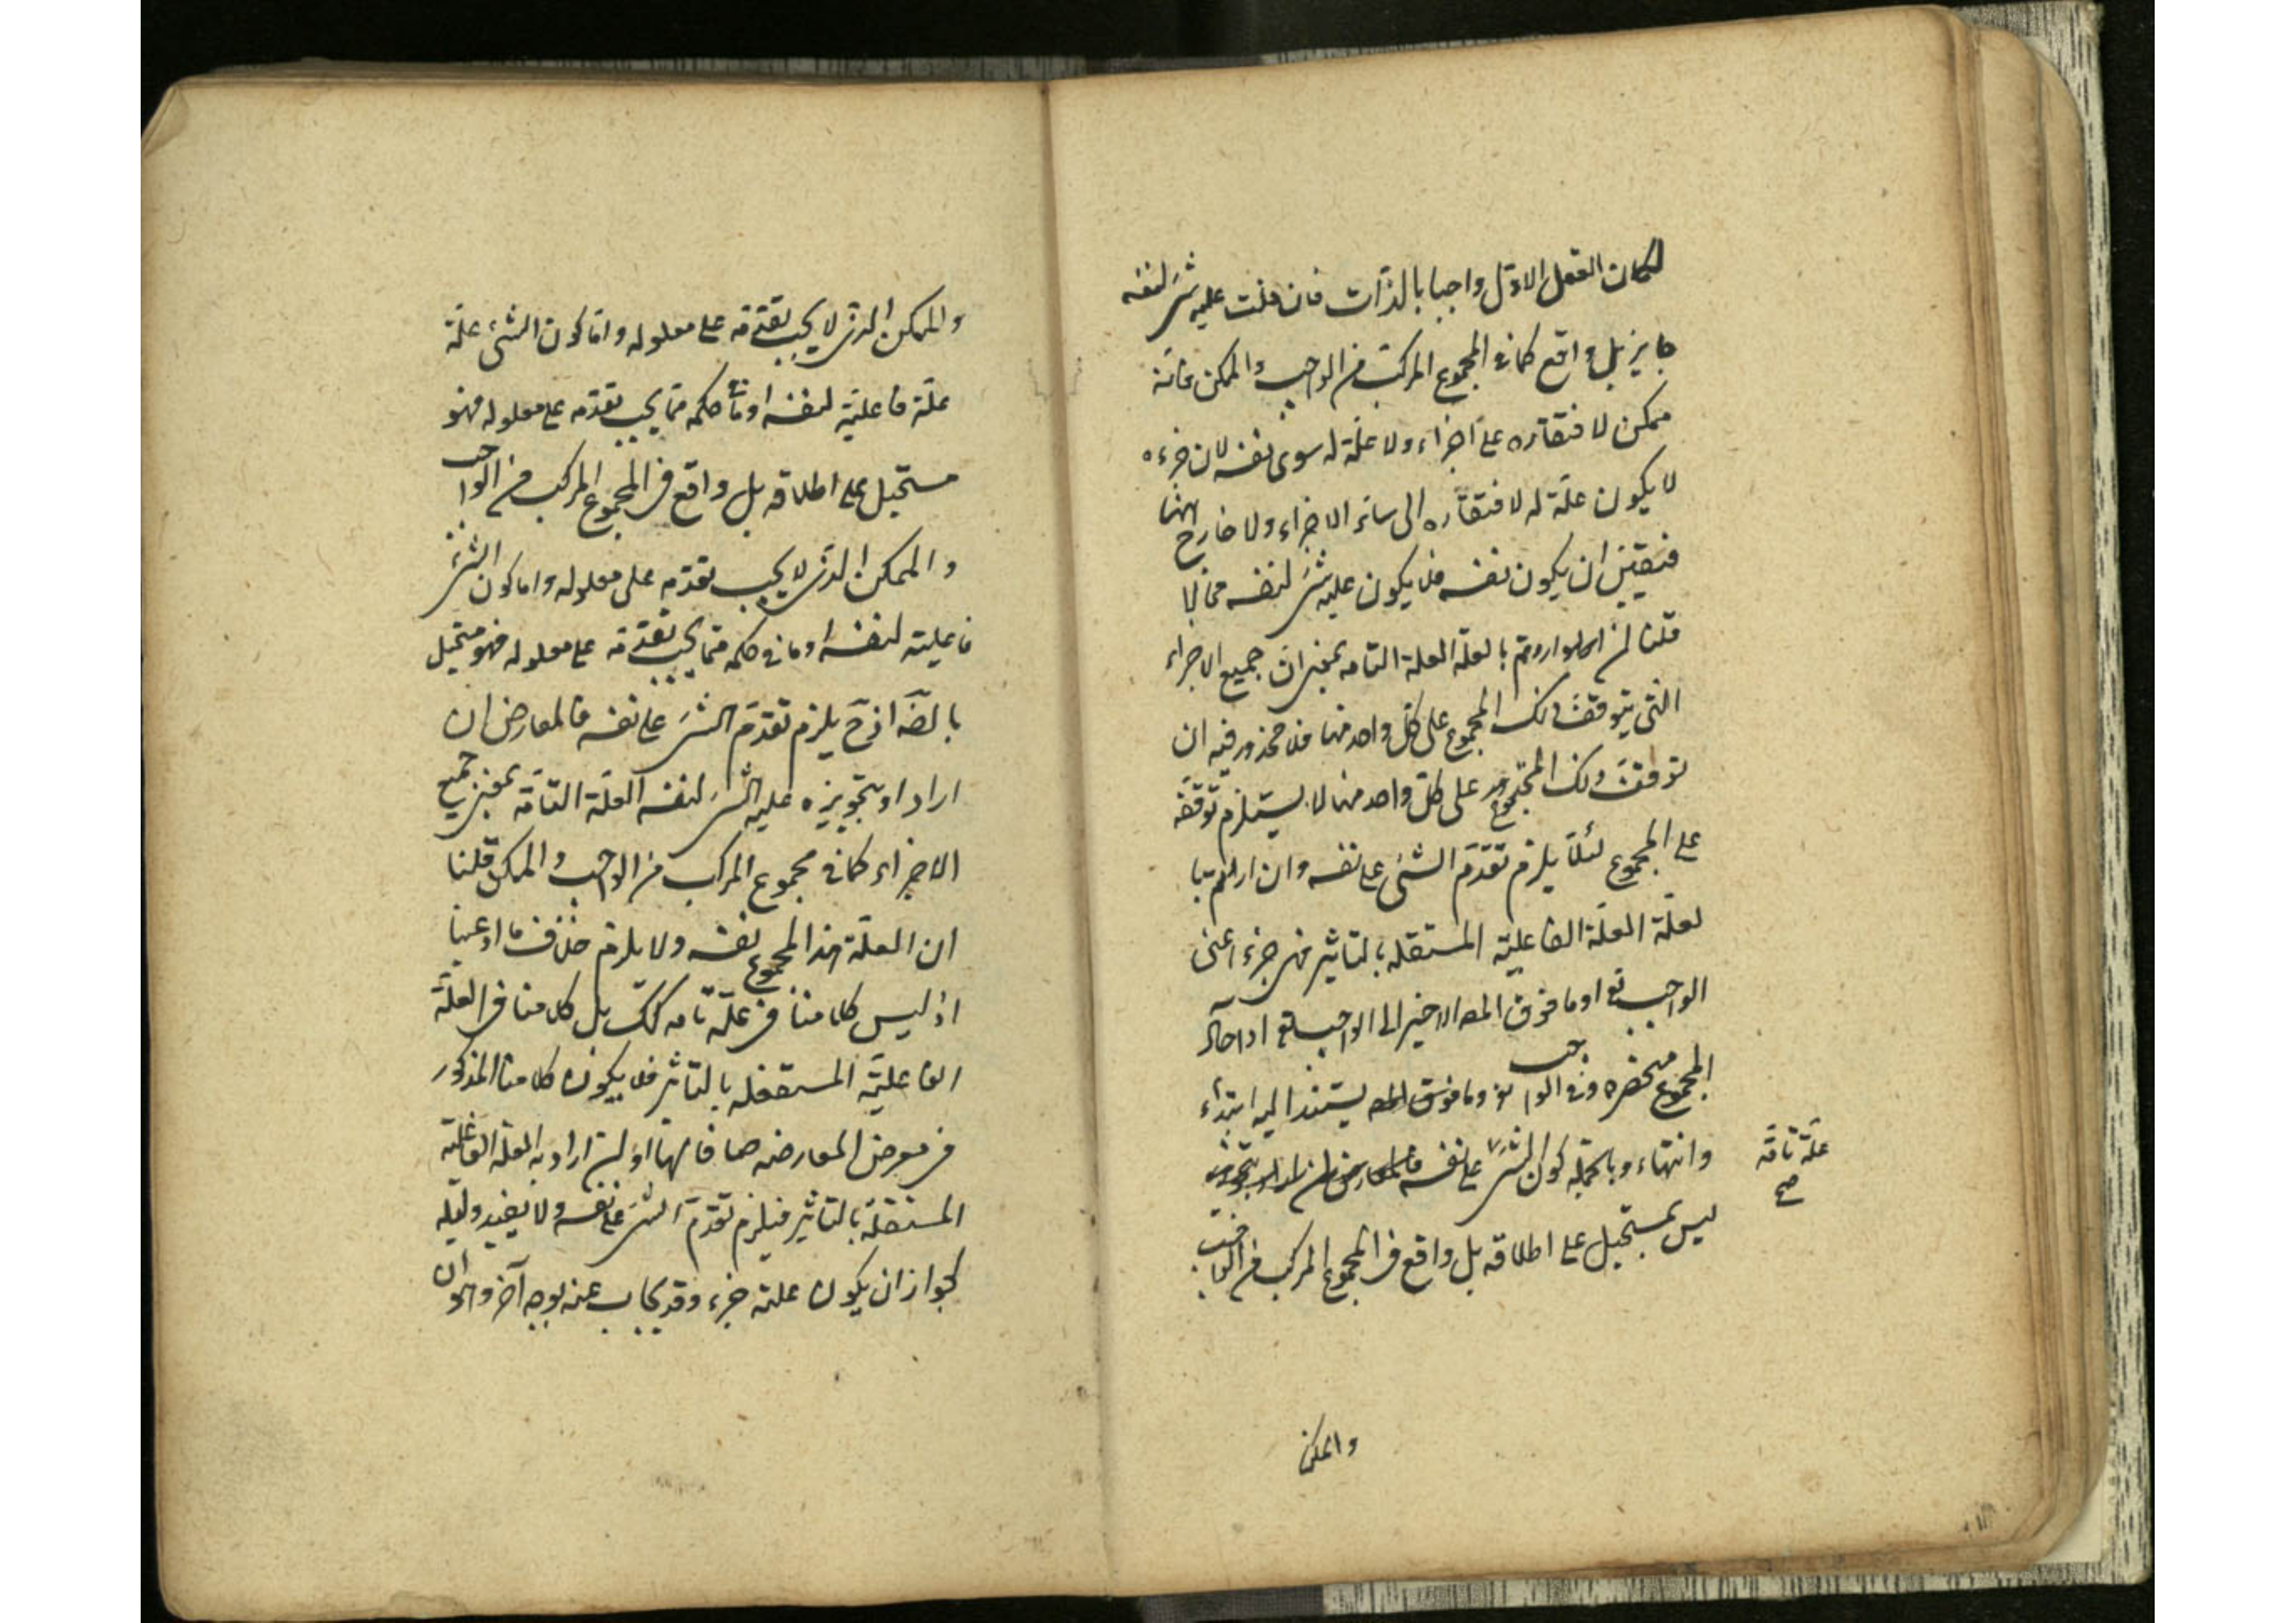 لكان العقل الاول واجبا بالذات فان قلت علية شئ لنفسه
جايز بل واقع كما فى المجموع المركب من الواجب والممكن فانه
ممكن لافتقاره على اجزاء ولا علة له سوى نفسه لان جزءه
لا يكون علة له لافتقاره الى سائر الاجزاء ولا خارج هنا
فتعين ان يكون نفسه فلا يكون علية شئ لنفسه محالا
قلنا ان اردتم بالعلة العلة التامة بمعنى ان جميع الاجزاء
التى يتوقف ذلك المجموع على كل واحد منها فلا محذور فيه ان
توقف ذلك المجموع على كل واحد منها لا يستلزم توقفه
على المجموع لئلا يلزم تقدم الشئ على نفسه وان اردتم با
لعلة العلة الفاعلية المستقلة بالتاثير فهى جزء اعنى
الواجب تع او ما فوق المع الاخير الى الواجب تع اد احاد
المجموع منحصرة فى الواجب تع وما فوق المع يستند اليه ابتداء
وانتهاء وبالجملة كون الشئ على نفسه
علة تامة
صح
ليس بمستحيل على اطلاقه بل واقع فى المجموع المركب من الواجب
والممكن
والممكن الذى لا يجب تقدمه على معلوله واما كون الشئ علة
علة فاعلية لنفسه او ما فى حكمه مما يجب تقدمه على معلوله فهو
مستحيل على اطلاقه بل واقع فى المجموع المركب من الواجب
والممكن الذى لا يجب تقدمه على معلوله واما كون الشئ
فاعلية لنفسه او ما فى حكمه مما يجب تقدمه على معلوله فهو مستحيل
بالضه اذ ح يلزم تقدم الشئ على نفسه فالمعارض ان
اراد او بتجويزه علية الشئ لنفسه العلة التامة بمعنى جميع
الاجزاء كما فى مجموع المركب من الواجب والممكن قلنا
ان العلة هذا المجموع نفسه ولا يلزم خلاف ما ادعينا
اذ ليس كلامنا فى علة تامه كك بل كلامنا فى العلة
الفاعلية المستقلة بالتاثير فلا يكون كلامنا المذكور
فى معرض المعارضه هما فانها اؤ ان اراد به العلة الفاعلية
المستقلة بالتاثير فيلزم تقدم الشئ على نفسه ولا يفيد دليله
لجواز ان يكون علته جزء وقد يجاب عنه بوجه آخر وهو ان